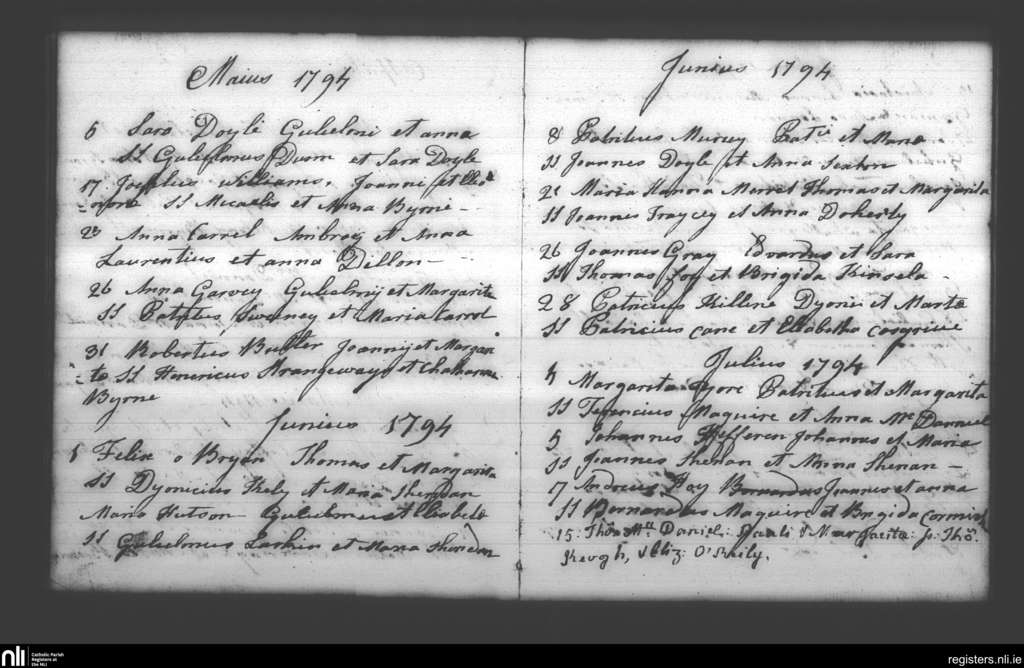 Maius 1794
6 Sara Doyle Gulielmi et anna
SS Gulielmus Dunn et Sara Doyle
17 Josephus Williams, Joanni et Eleo
nore SS Micaelis et Anna Byrne -
20 Anna Carrel Ambrosy et Anna
Laurentius et anna Dillon -
26 Anna Garvey Gulielmij et Margarite
SS Sweeney et Maria Carrol
31 Robertus Butler Joannij et Margari
te SS Henericus Strangeways et
Byrne
Junius 1794
1 Felix o Bryan Thomas et Margarita
SS Dyonicius Kely et Maria Sheridan
Maria Hutson Gulielmus et Elisabeth
SS Gulielmus Larkin et Maria Sheridan
Junius 1794
8 Patritius Murrey Patri et Maria
SS Joannes Doyle et Anna Seaton
21 Maria Hanna Merret Thomas et Margarita
SS Joannes Traycey et Anna Doherty
26 Joannes Gray Edvardus et Sara
SS Thomas Foy et Brigida Kinsela -
28 Patricius Killine Dyonis et Marta
SS Patricius Cane et Elisabetha Cosgrive
Julius 1794
4 Margarita Patritius et Margarita
SS Terencius Maguire et Anna Mc Danniel
5 Johannes Hefferen Johannes et Maria
SS Joannes Shenan et Anna Shenan -
17 Andreas Day Bernardus Joannes et anna
SS Bernardus Maguire et Brigida Cormick
15: Thōs Mc Daniel: Pauli & Margarita: p: Thō.
Keough, & Eliz: O'Reily.
nli
Catholic Parish
Registers at
the NLI
registers.nli.ie